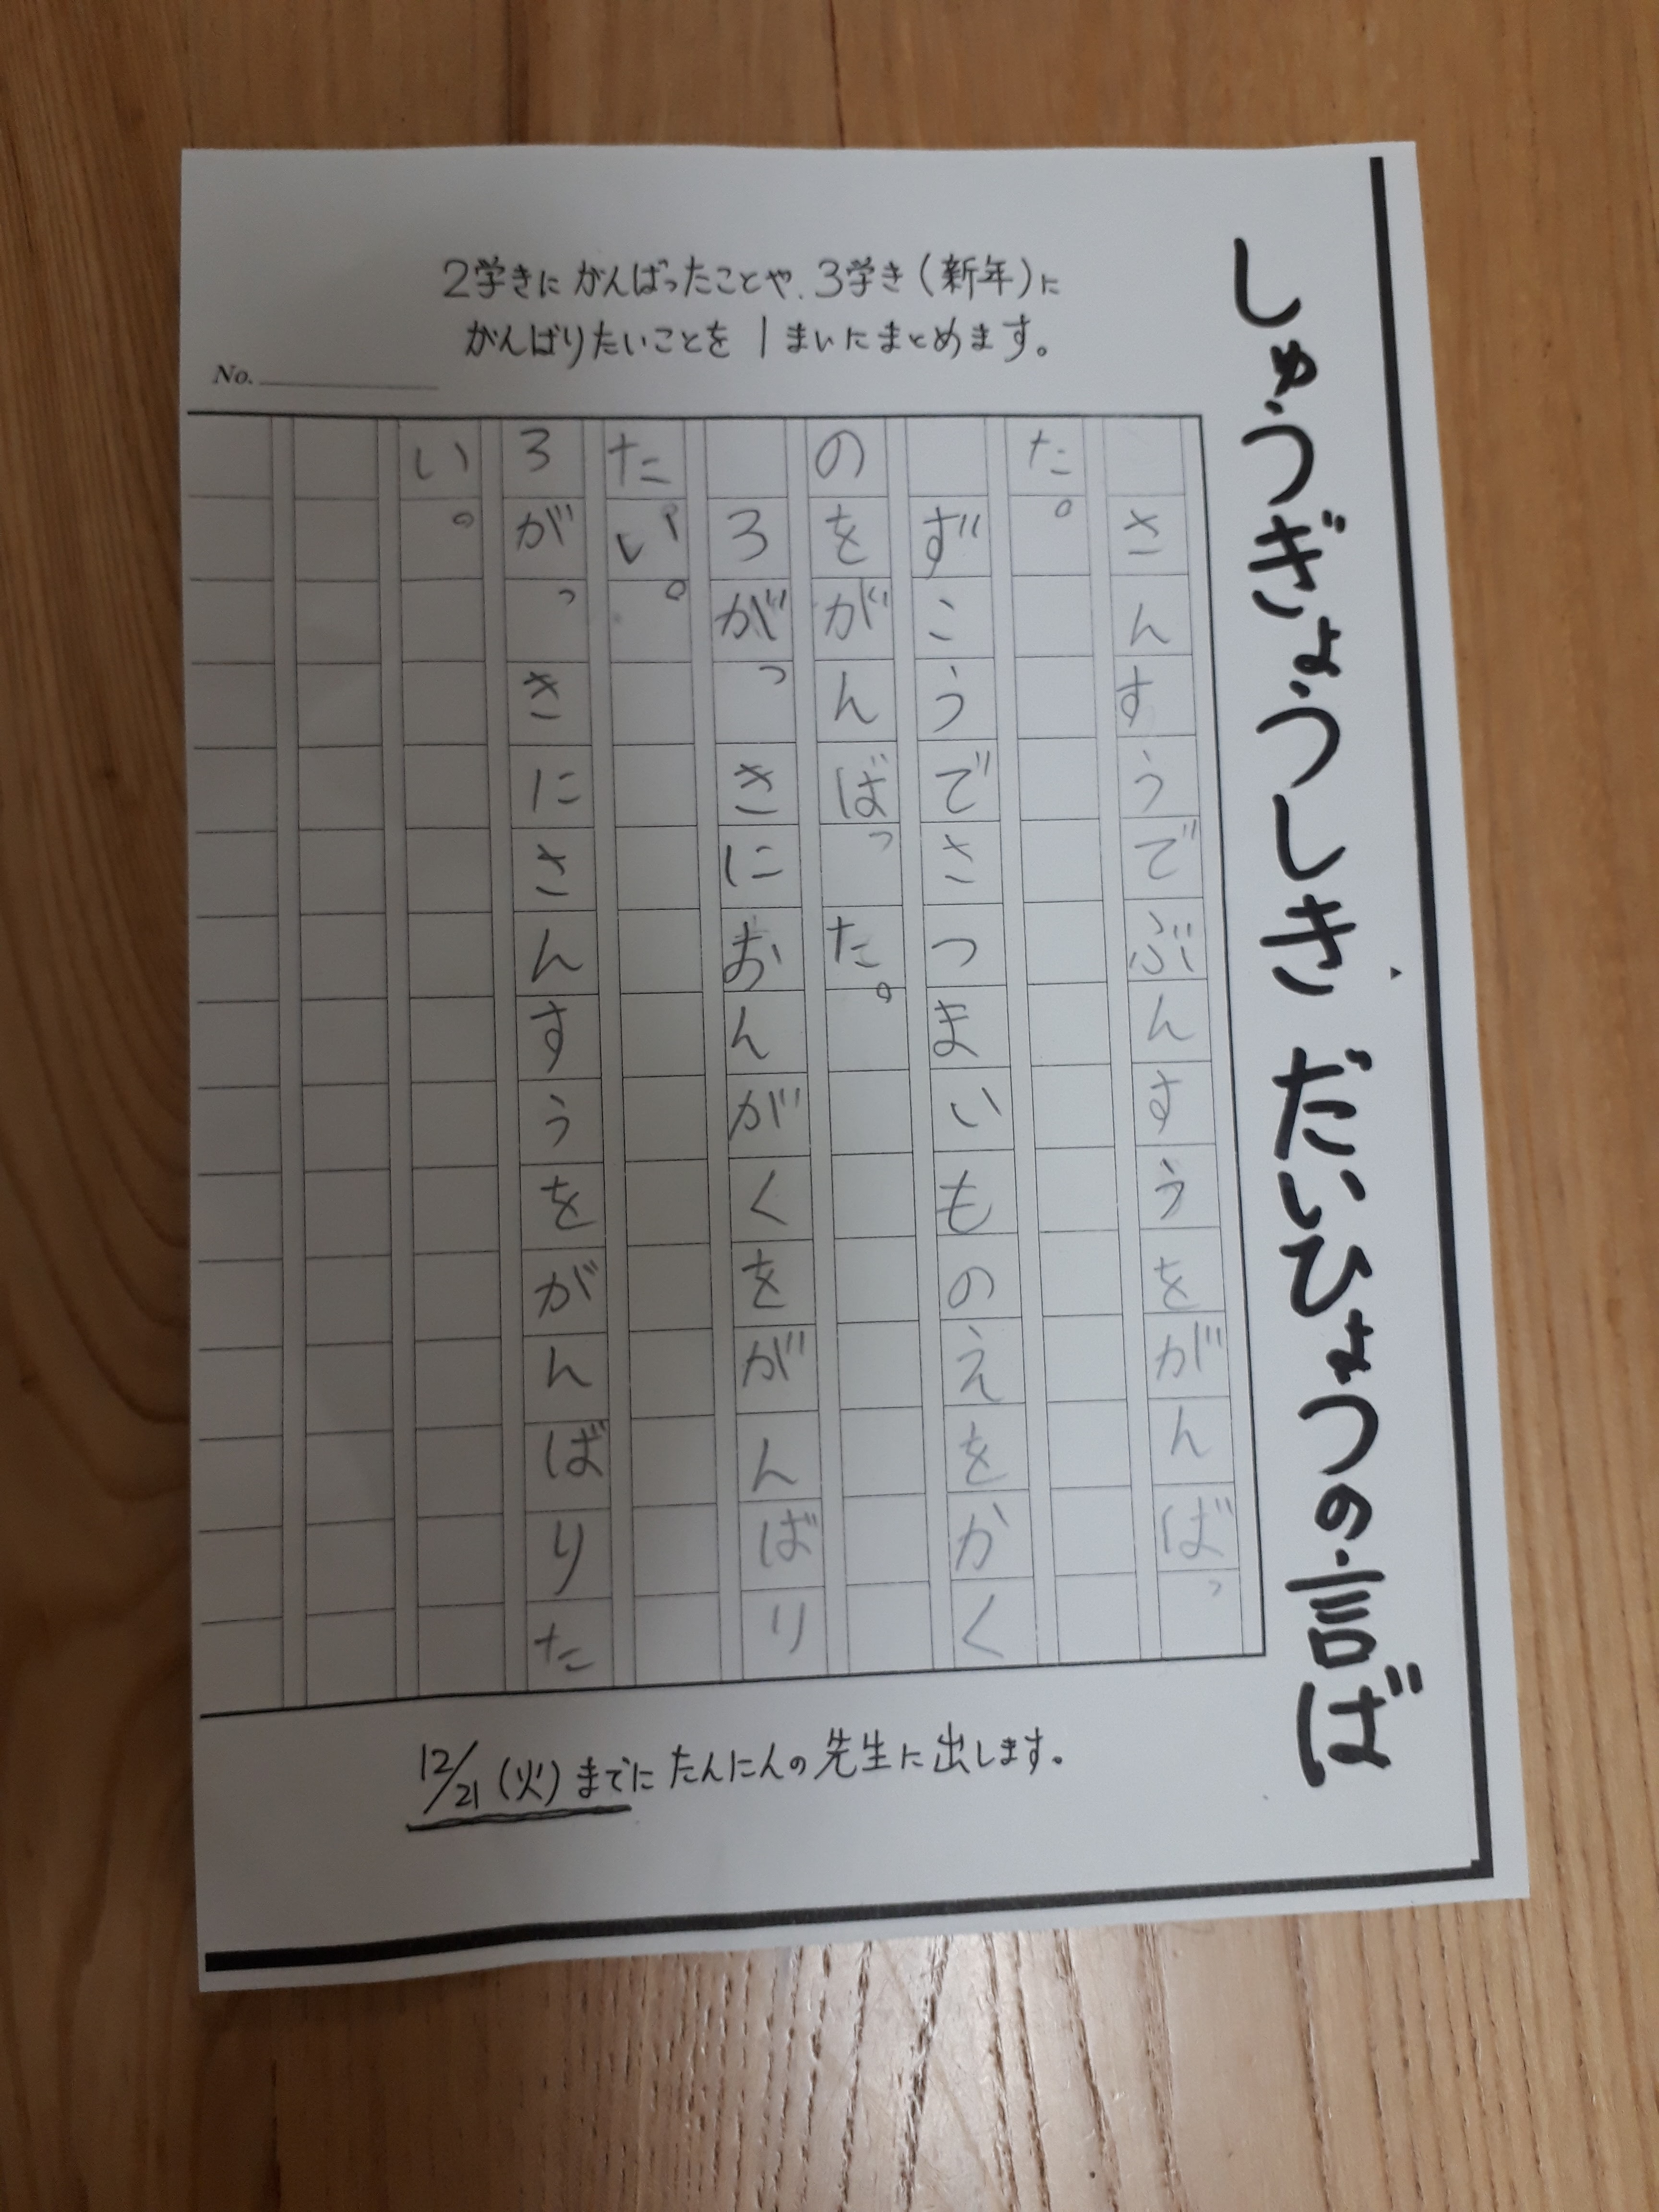 しゅうぎょうしき だいひょうの言ば
2学きに がんばったことや、3学き(新年)に
がんばりたいことを 1まいにまとめます。
No.
さんすうでぶんすうをがんばっ
た。
ずこうでさつまいものえをかく
のをがんばった。
3がっきにおんがくをがんばり
たい。
3がっきにさんすうをがんばりた
い。
12/21(火)までに たんにんの先生に出します。